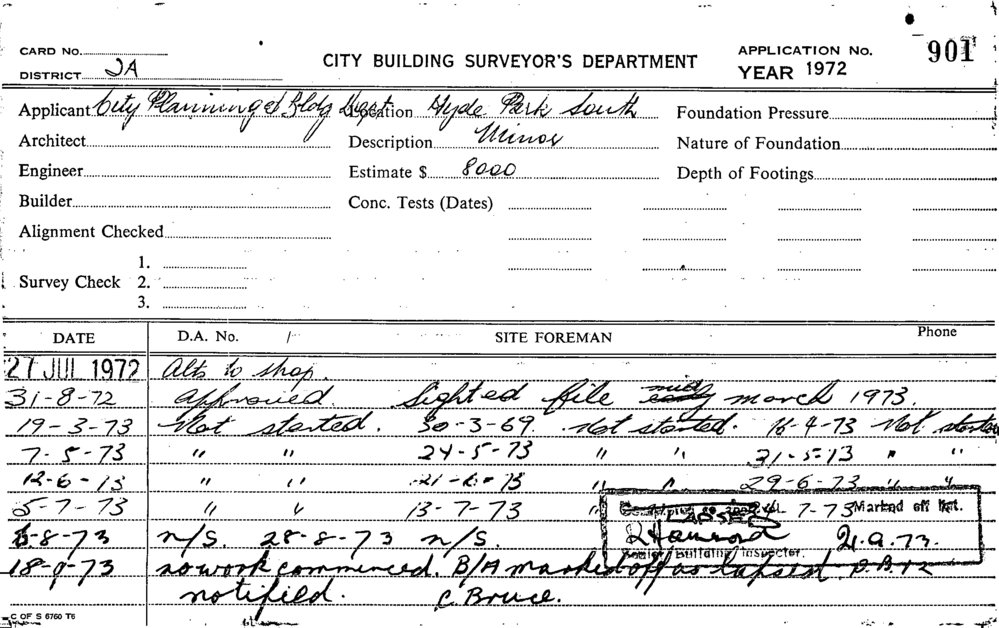 CARD No.
CITY BUILDING SURVEYOR'S DEPARTMENT
APPLICATION No. 901
DISTRICT 2A
YEAR 1972
Applicant City Planning & Bldg Dept Location Hyde Park South Foundation Pressure
Architect Description Minor Nature of Foundation
Engineer Estimate $ 8000 Depth of Footings
Builder Conc. Tests (Dates)
Alignment Checked
1.
Survey Check 2.
3.
DATE D.A. No. / SITE FOREMAN Phone
27 JUL 1972 Alts to shop.
31-8-72 approved. Sighted file mid early march 1973.
19-3-73 Not started. 30-3-69. Not started. 16-4-73 Not started
7-5-73 " " 24-5-73 " " 31-5-73 " "
12-6-73 " " 21-6-73 " " 29-6-73 " "
5-7-73 " " 13-7-73 " 7-73 Marked off list.
LAPSED
8-73 n/S. 28-8-73 n/S.
Senior Building Inspector.
18-9-73 no work commenced. B/A marked off as lapsed.
notified. C Bruce.
C OF S 6760 T6